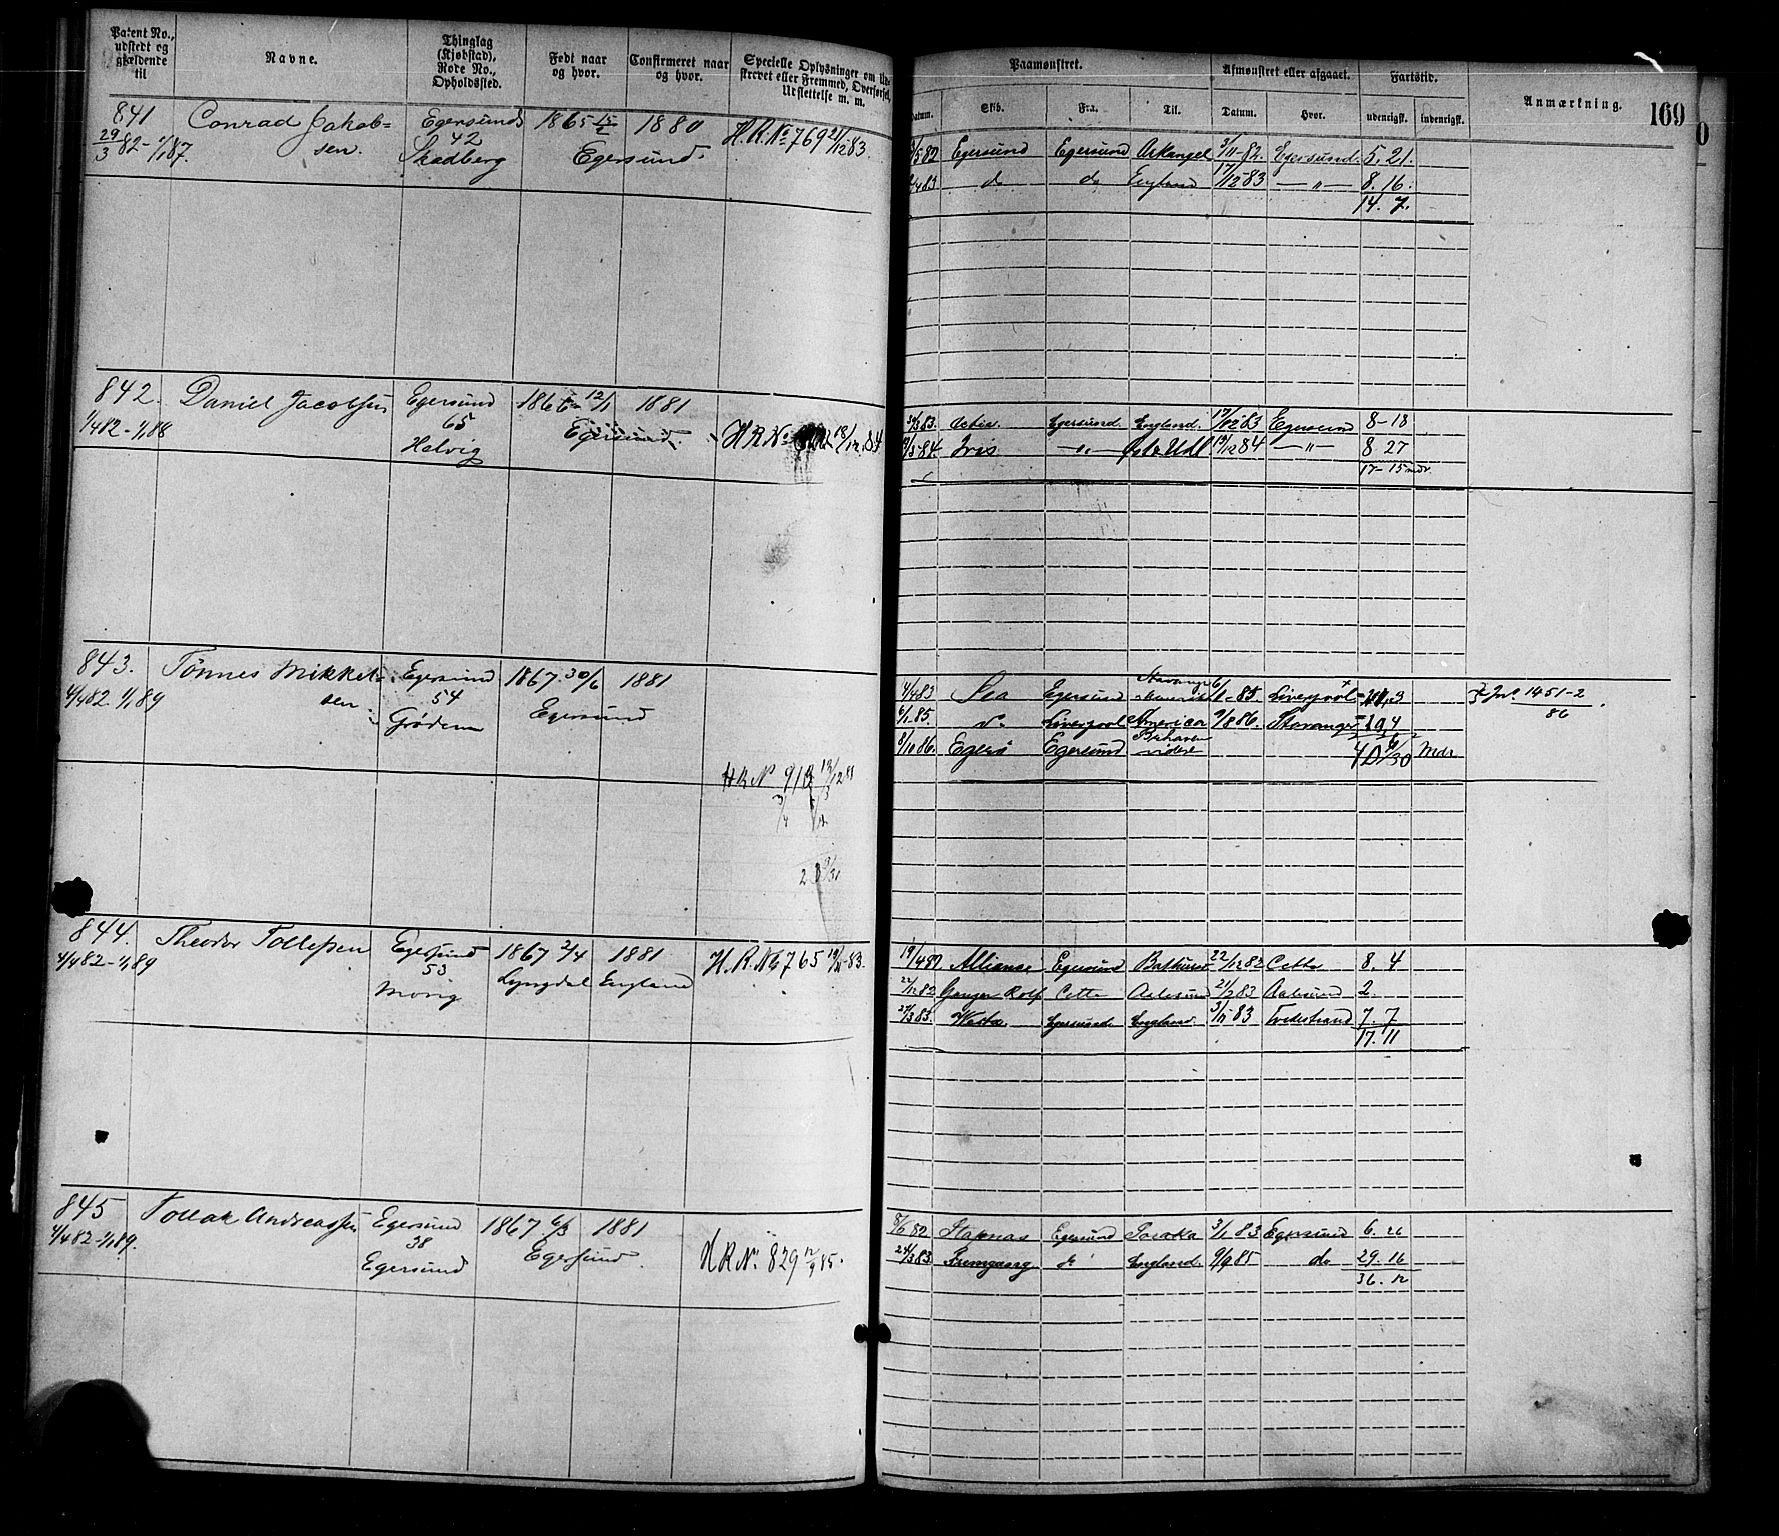 Patent No., udstedt og gjældende til
Navne.
Thinglag (Kjøbstad), Rode No., Opholdssted.
Født naar og hvor.
Confirmeret naar og hvor.
Specielle Oplysninger om
strevet eller Fremmed, Overførsel,
Udslettelse m. m.
Paamønstret.
Afmønstret eller afgaaet.
Fartstid.
Anmærkning.
169
Datum.
Skib.
Fra.
Til.
Datum.
Hvor.
udenrigsk.
indenrigsk.
841 Conrad Jakob= Egersund 1865 15/2 1880 H.R.No 769 21/12 83.
29/3 82 - 1/1 87. sen. 42
Skadberg Egersund.
Egersund Egersund Arkangel 3/11-82. Egersund. 5. 21.
do do England 17/12 83 — " — 8. 16.
14. 7.
842. Daniel Jacobsen Egersund 1866 12/1 1881
1/4 82 - 1/1 88 65 Egersund. H.R.No 18/12 84
Helvig
England. 17/12 83 Egersund 8-18
Iris — " — 19/12 84 — " — 8 27
17-15 mdr.
843. Tønnes Mikkel= Egersund 1867 30/6 1881
4/4 82 1/1 89 sen. 54 Egersund
Grødem
4/4 83 Egersund Stavanger 6/1-85. Liverpool
6/1 85. do Liverpool America 9/8 86. Stavanger
8/10 86. Egerø Egersund
mdr
J No. 1451-2
86
H R No 918
844. Theodor Tollefsen Egersund 1867 2/4 1881 H.R.No 765 83.
4/4 82 - 1/1 89 53 Lyngdal England
Movig
19/4 82 Alliance Egersund Bathurst 22/12 82 Cette 8. 4
22/12 82 Ganger Rolf Cette Aalesund 21/2 83 Aalesund 2.
27/3 83. Vesta Egersund England. 3/11 83 Tvedestrand 7. 7
17. 11
845 Tollak Andreassen Egersund 1867 6/3 1881
4/4 82 - 1/1 89. 38 Egersund. H R No. 829 12/9 85.
Egersund
8/6 82 Egersund 3/1 83 Egersund 6. 26
24/3 83. Fremgang do England. 9/9 85 do 29. 16
36. 12